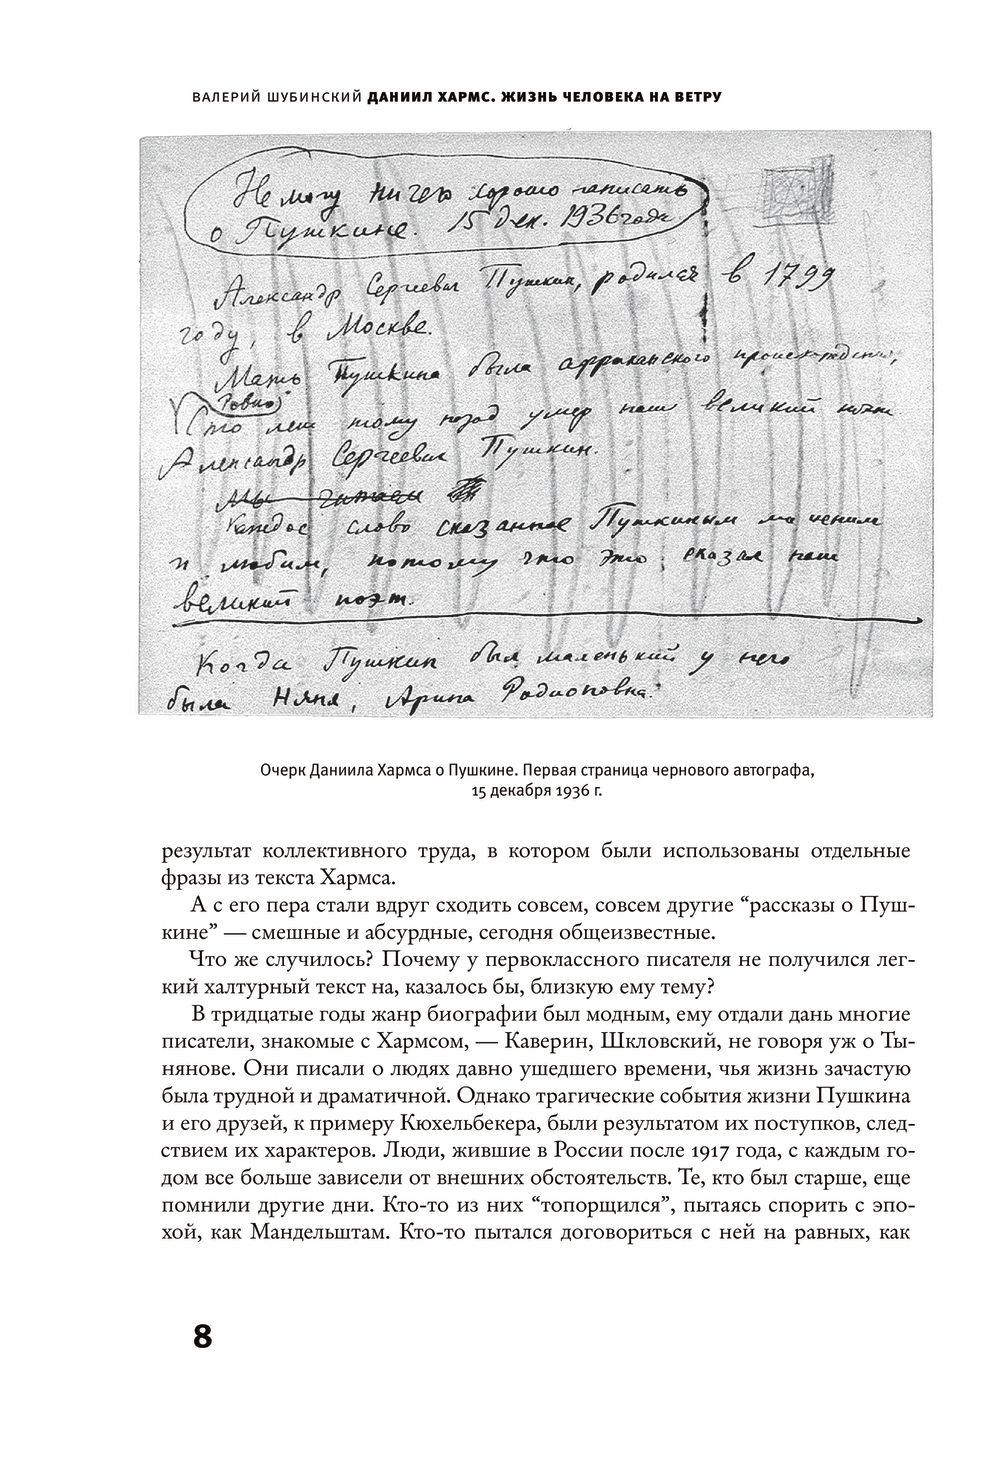 ВАЛЕРИЙ ШУБИНСКИЙ ДАНИИЛ ХАРМС. ЖИЗНЬ ЧЕЛОВЕКА НА ВЕТРУ
Не могу ничего хорошо написать
о Пушкине. 15 дек. 1936 года
Александр Сергеевич Пушкин, родился в 1799
году, в Москве.
Мать Пушкина была африканского происхождения,
Ровно
Сто лет тому назад умер наш великий поэт
Александр Сергеевич Пушкин.
Мы читаем
Каждое слово сказанное Пушкиным мы ценим
и любим, потому что это сказал наш
великий поэт.
Когда Пушкин был маленький у него
была Няня, Арина Родионовна.
Очерк Даниила Хармса о Пушкине. Первая страница чернового автографа,
15 декабря 1936 г.
результат коллективного труда, в котором были использованы отдельные
фразы из текста Хармса.
А с его пера стали вдруг сходить совсем, совсем другие “рассказы о Пуш-
кине” — смешные и абсурдные, сегодня общеизвестные.
Что же случилось? Почему у первоклассного писателя не получился лег-
кий халтурный текст на, казалось бы, близкую ему тему?
В тридцатые годы жанр биографии был модным, ему отдали дань многие
писатели, знакомые с Хармсом, — Каверин, Шкловский, не говоря уж о Ты-
нянове. Они писали о людях давно ушедшего времени, чья жизнь зачастую
была трудной и драматичной. Однако трагические события жизни Пушкина
и его друзей, к примеру Кюхельбекера, были результатом их поступков, след-
ствием их характеров. Люди, жившие в России после 1917 года, с каждым го-
дом все больше зависели от внешних обстоятельств. Те, кто был старше, еще
помнили другие дни. Кто-то из них “топорщился”, пытаясь спорить с эпо-
хой, как Мандельштам. Кто-то пытался договориться с ней на равных, как
8